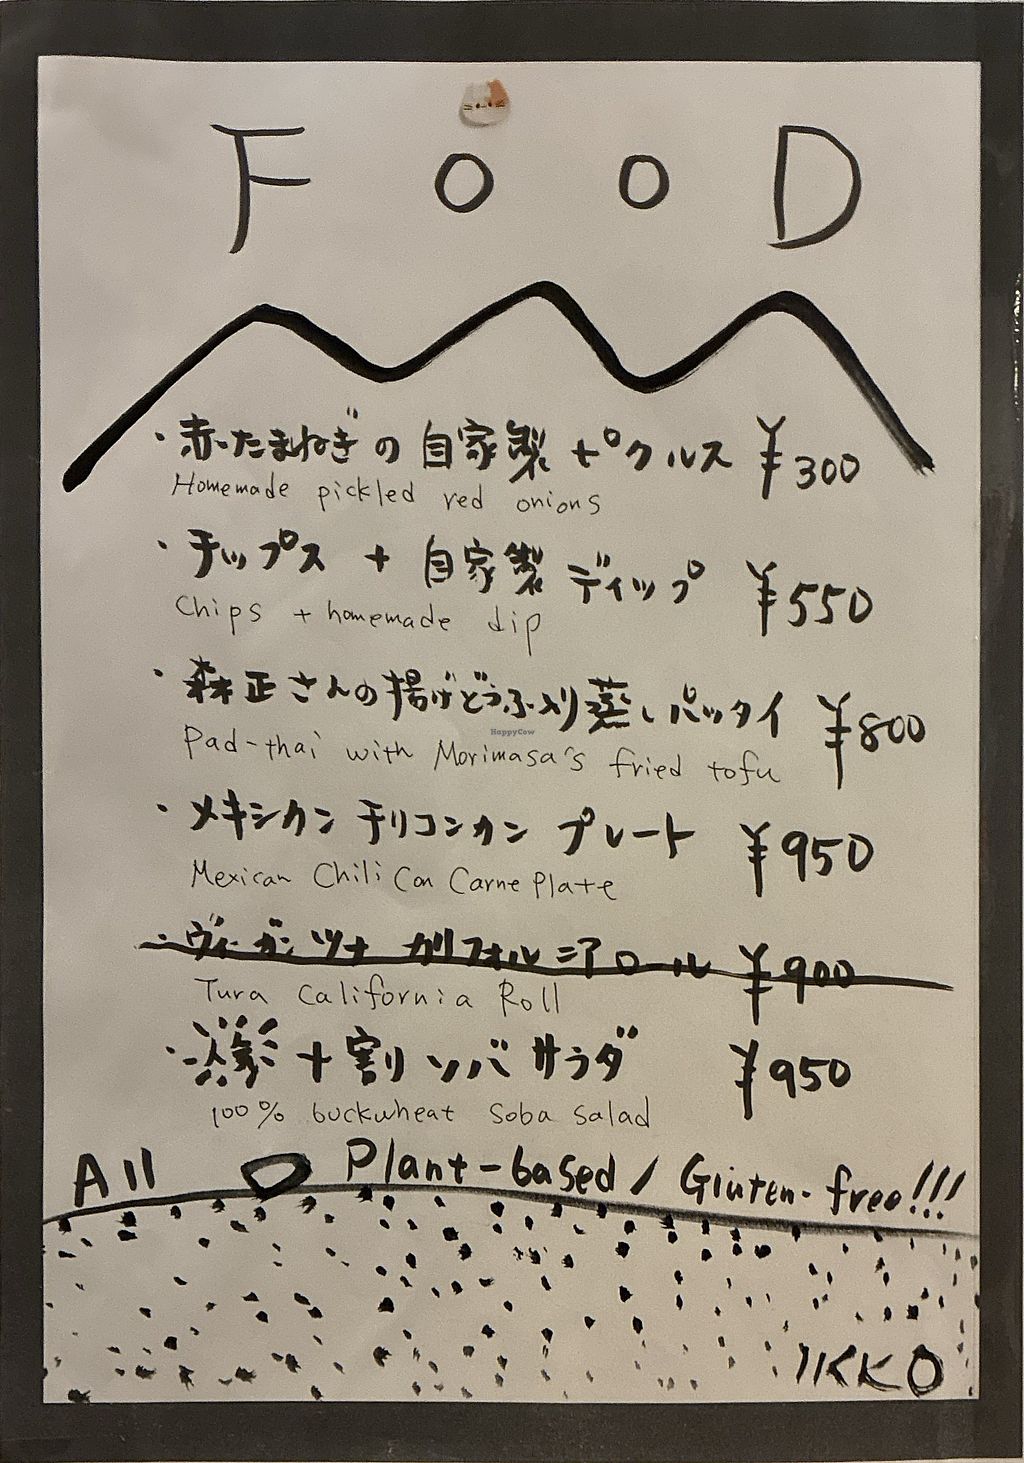 FOOD
・赤たまねぎの自家製ピクルス ¥300
Homemade pickled red onions
・チップス + 自家製ディップ ¥550
Chips + homemade dip
・森正さんの揚げどうふ入り蒸しパッタイ ¥800
HappyCow
Pad-thai with Morimasa's fried tofu
・メキシカン チリコンカン プレート ¥950
Mexican Chili Con Carne Plate
・ヴィーガン ツナ カリフォルニアロール ¥900
Tuna California Roll
・十割りソバサラダ ¥950
100% buckwheat soba salad
All Plant-based / Gluten-free!!!
IKKO